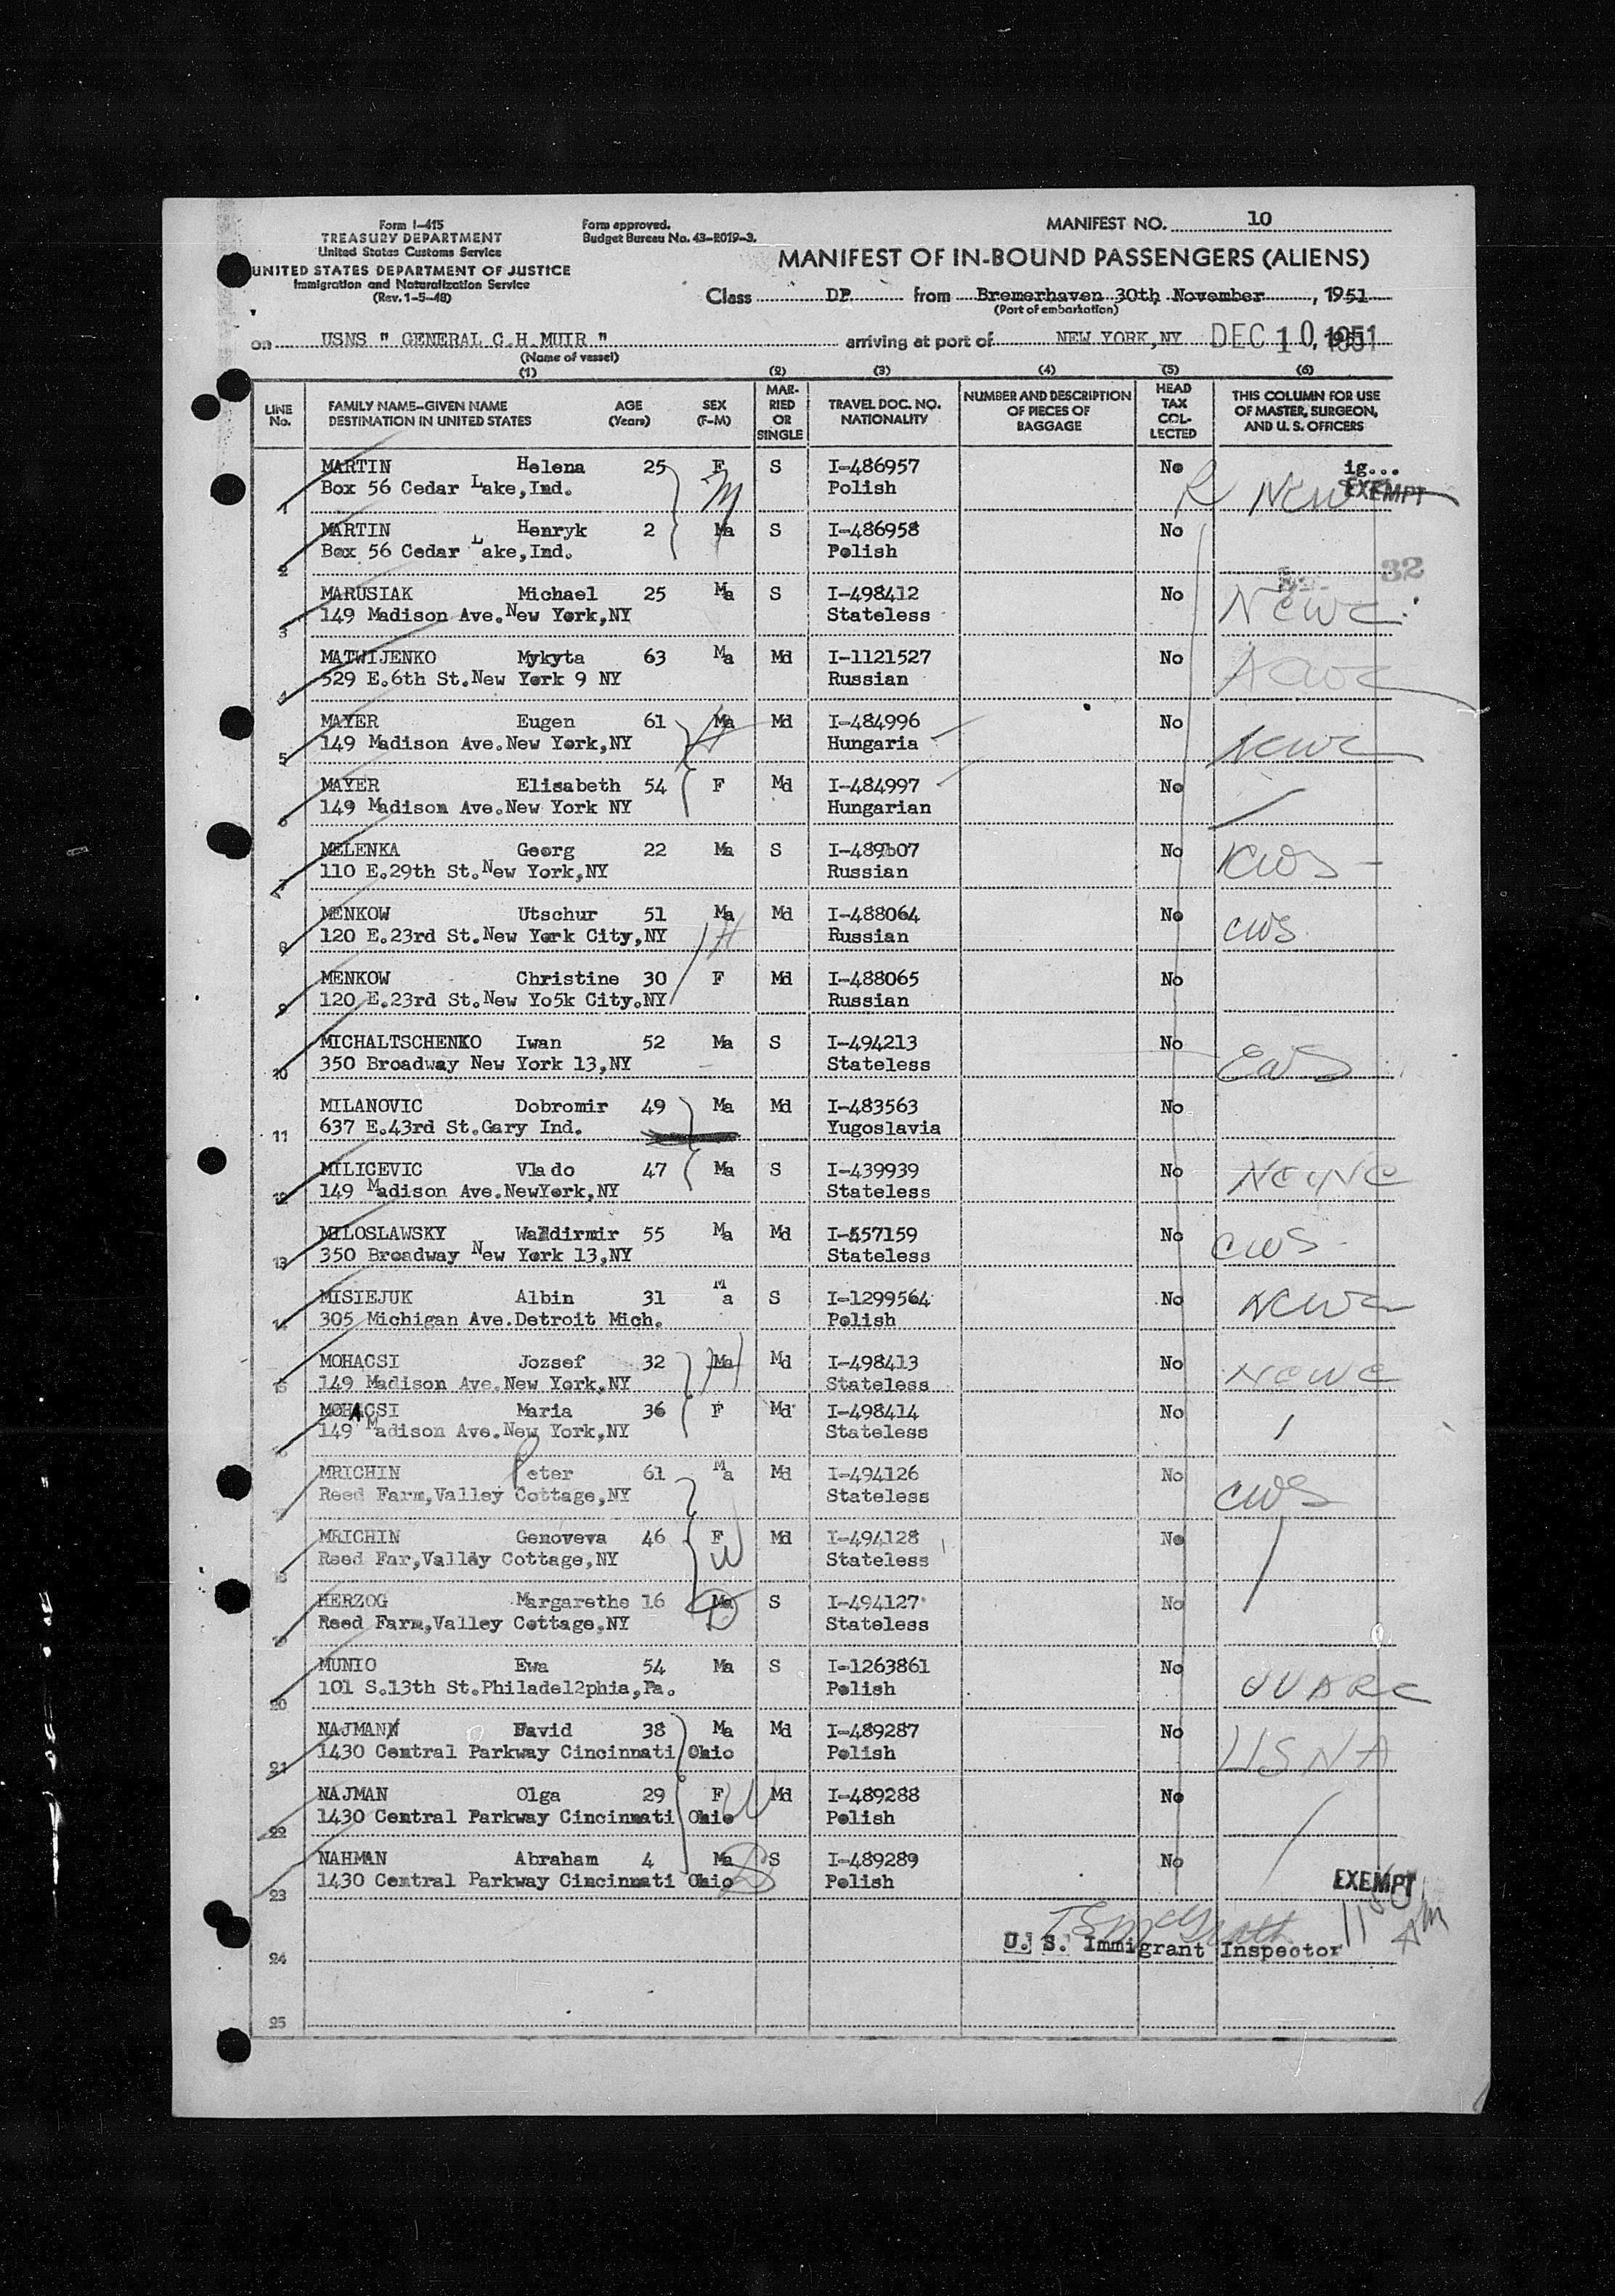 Form I-415
TREASURY DEPARTMENT
United States Customs Service
UNITED STATES DEPARTMENT OF JUSTICE
Immigration and Naturalization Service
(Rev. 1-5-48)
Form approved.
Budget Bureau No. 43-R019-3.
MANIFEST NO. 10
MANIFEST OF IN-BOUND PASSENGERS (ALIENS)
Class DP from Bremerhaven 30th November, 1951
(Port of embarkation)
on USNS " GENERAL C.H.MUIR " arriving at port of NEW YORK,NY DEC 10, 1951
(Name of vessel)
(1) (2) (3) (4) (5) (6)
LINE No. FAMILY NAME—GIVEN NAME DESTINATION IN UNITED STATES AGE (Years) SEX (F-M) MARRIED OR SINGLE TRAVEL DOC. NO. NATIONALITY NUMBER AND DESCRIPTION OF PIECES OF BAGGAGE HEAD TAX COLLECTED THIS COLUMN FOR USE OF MASTER, SURGEON, AND U. S. OFFICERS
MARTIN Helena 25 F S I-486957 No ig...
1 Box 56 Cedar Lake,Ind. M Polish R NCW EXEMPT
MARTIN Henryk 2 Ma S I-486958 No
2 Box 56 Cedar Lake,Ind. Polish
32
MARUSIAK Michael 25 Ma S I-498412 No NCWC
3 149 Madison Ave.New York,NY Stateless
MATWIJENKO Mykyta 63 Ma Md I-1121527 No
4 529 E.6th St.New York 9 NY Russian
MAYER Eugen 61 Ma Md I-484996 No
5 149 Madison Ave.New York,NY H Hungaria NCWC
MAYER Elisabeth 54 F Md I-484997 No
6 149 Madison Ave.New York NY Hungarian
MELENKA Georg 22 Ma S No
7 110 E.29th St.New York,NY Russian
MENKOW Utschur 51 Ma Md I-488064 No
8 120 E.23rd St.New York City,NY H Russian CWS
MENKOW Christine 30 F Md I-488065 No
9 120 E.23rd St.New Yo5k City.NY Russian
MICHALTSCHENKO Iwan 52 Ma S I-494213 No
10 350 Broadway New York 13,NY Stateless
MILANOVIC Dobromir 49 Ma Md I-483563 No
11 637 E.43rd St.Gary Ind. Yugoslavia
MILICEVIC Vlado 47 Ma S I-439939 No NCWC
12 149 Madison Ave.NewYork,NY Stateless
MILOSLAWSKY 55 Ma Md I-557159 No CWS
13 350 Broadway New York 13,NY Stateless
MISIEJUK Albin 31 Ma S I-1299564 No NCWC
14 305 Michigan Ave.Detroit Mich. Polish
MOHACSI Jozsef 32 Ma H Md I-498413 No NCWC
15 149 Madison Ave.New York,NY Stateless
MOHACSI Maria 36 F Md I-498414 No
16 149 Madison Ave.New York,NY Stateless
MRICHIN Peter 61 Ma Md I-494126 No CWS
17 Reed Farm,Valley Cottage,NY Stateless
MRICHIN Genoveva 46 F Md I-494128 No
18 Reed Far,Valläy Cottage,NY W Stateless
HERZOG Margarethe 16 Ma D S I-494127 No
19 Reed Farm,Valley Cottage,NY Stateless
MUNIO Ewa 54 Ma S I-1263861 No
20 101 S.13th St.Philadel2phia,Pa. Polish UUARC
NAJMANN David 38 Ma Md I-489287 No USNA
21 1430 Central Parkway Cincinnati Ohio Polish
NAJMAN Olga 29 F W Md I-489288 No
22 1430 Central Parkway Cincinnati Ohio Polish
NAHMAN Abraham 4 Ma S I-489289 No
23 1430 Central Parkway Cincinnati Ohio Polish EXEMPT
24 U. S. Immigrant Inspector
25